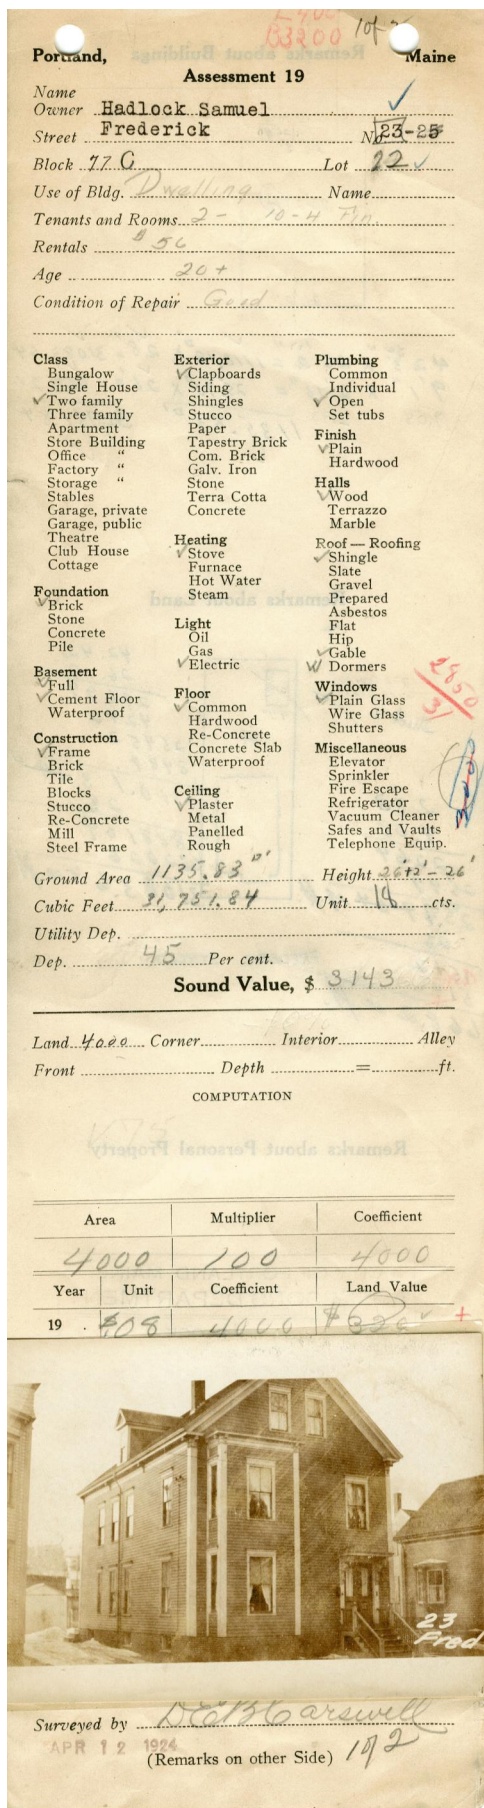 L400
B3200 1 of 2
Portland, Maine
Assessment 19
Name
Owner Hadlock Samuel
Street Frederick No 23-25
Block 77 C Lot 22
Use of Bldg. Dwelling Name
Tenants and Rooms 2- 10-4 Fin.
Rentals $56
Age 20+
Condition of Repair Good
Class
Bungalow
Single House
Two family
Three family
Apartment
Store Building
Office "
Factory "
Storage "
Stables
Garage, private
Garage, public
Theatre
Club House
Cottage
Foundation
Brick
Stone
Concrete
Pile
Basement
Full
Cement Floor
Waterproof
Construction
Frame
Brick
Tile
Blocks
Stucco
Re-Concrete
Mill
Steel Frame
Exterior
Clapboards
Siding
Shingles
Stucco
Paper
Tapestry Brick
Com. Brick
Galv. Iron
Stone
Terra Cotta
Concrete
Heating
Stove
Furnace
Hot Water
Steam
Light
Oil
Gas
Electric
Floor
Common
Hardwood
Re-Concrete
Concrete Slab
Waterproof
Ceiling
Plaster
Metal
Panelled
Rough
Plumbing
Common
Individual
Open
Set tubs
Finish
Plain
Hardwood
Halls
Wood
Terrazzo
Marble
Roof — Roofing
Shingle
Slate
Gravel
Prepared
Asbestos
Flat
Hip
Gable
Dormers
Windows
Plain Glass
Wire Glass
Shutters
Miscellaneous
Elevator
Sprinkler
Fire Escape
Refrigerator
Vacuum Cleaner
Safes and Vaults
Telephone Equip.
2850
31
Ground Area 1135.83 Height 26'+2'-26'
Cubic Feet 31,751.84 Unit 18 cts.
Utility Dep.
Dep. 45 Per cent.
Sound Value, $ 3143
Land 4000 Corner Interior Alley
Front Depth = ft.
COMPUTATION
Area Multiplier Coefficient
4000 100 4000
Year Unit Coefficient Land Value
19 . $.08 4000 $320 +
23
Fred
Surveyed by D E B Carswell
APR 12 1924
(Remarks on other Side) 1 of 2